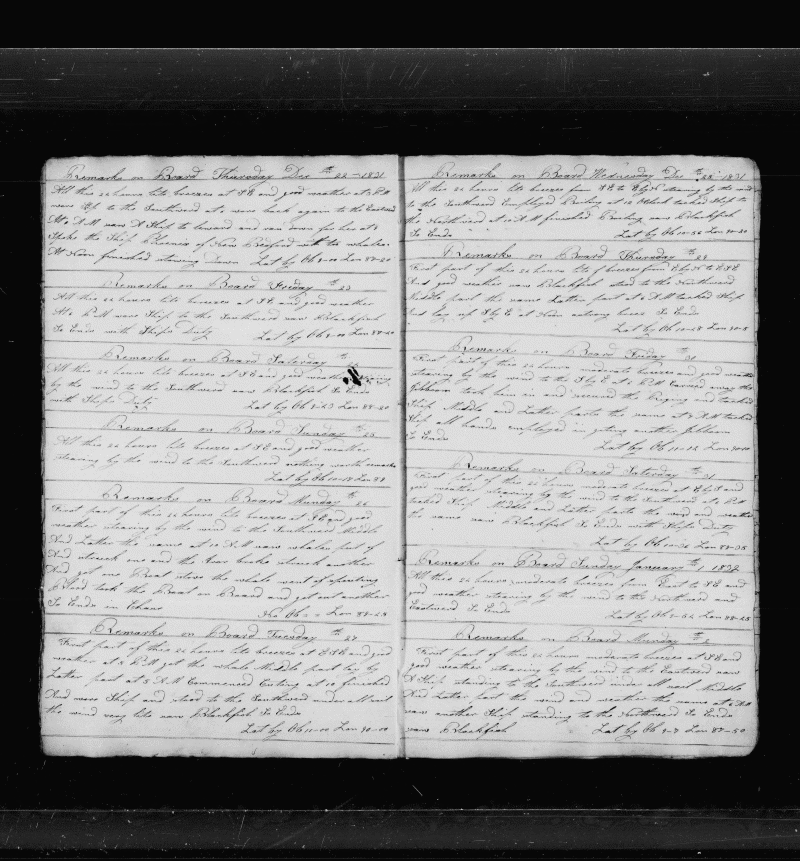 Remarks on Board Thursday Dec th 22 - 1831
All this 24 hours lite breezes at SE and good weather at 3 PM
wore Ship to the Southward at 6 wore back again to the Eastward
At 6 AM saw A Ship to leward and run down for her at 8
Spoke the Ship Phoenix of New Bedford with the whales
At Noon finished stowing Down Lat by Ob 9-00 Lon 88-20
Remarks on Board Friday th 23
All this 24 hours lite breezes at SE and good weather
At 6 PM wore Ship to the Southward saw Blackfish
So Ends with Ships Duty Lat by Ob 9-00 Lon 88-20
Remarks on Board Saturday th
All this 24 hours lite breezes at SE and good weather
by the wind to the Southward saw Blackfish So Ends
with Ships Duty Lat by Ob 9-23 Lon 88-20
Remarks on Board Sunday th 25
All this 24 hours lite breezes at SE and good weather
stearing by the wind to the Southward nothing worth remarks
Lat by Ob 10-18 Lon 88
Remarks on Board Munday th 26
First part of this 24 hours lite breezes at SE and good
weather stearing by the wind to the Southward Middle
And Latter the same at 10 AM saw whales put of
And struck one and the 
And got one Boat stove the whale went of spouting
 took the Boat on Board and got out another
So Ends in Chase No Ob Lon 88-28
Remarks on Board Tuesday th 27
First part of this 24 hours lite breezes at ESE and good
weather at 3 PM got the whale Middle part lay by
Latter part at 5 AM Commenced Cuting at 10 finished
And wore Ship and stood to the Southward under all sail
the wind very lite saw Blackfish So Ends
Lat by Ob 11-00 Lon 90-00
Remarks on Board Wednesday Dec th 28 1831
All this 24 hours lite breezes from SE to E by N stearing by the wind
to the Southward Employed Boiling at 10 Oclock tacked Ship to
the Northward at AM finished Boiling saw Blackfish
So Ends Lat by Ob 10-56 Lon 90-20
Remarks on Board Thursday th 29
First part of this 24 hours lite breezes from E by N to ESE
And good weather saw Blackfish stood to the Northward
Middle part the same Latter part at 5 AM tacked Ship
And lay up S by E at Noon strong breez So Ends
Lat by Ob 10-28 Lon 90-8
Remarks on Board Friday th 30
First part of this 24 hours moderate breezes and good weather
stearing by the wind to the S by E at 2 PM Carried away the
Jibboom took him in and secured the Riging and tacked
Ship Middle and Latter parts the same at 8 AM tacked
Ship all hands employed in geting another Jibboom
So Ends Lat by Ob 10-12 Lon 90-10
Remarks on Board Saturday th 31
First part of this 24 hours moderate breezes at E by S and
good weather stearing by the wind to the Southward at 2 PM
tacked Ship Middle and Latter parts the wind and weather
the same saw Blackfish So Ends with Ships Duty
Lat by Ob 10-30 Lon 89-35
Remarks on Board Sunday January th 1 1832
All this 24 hours moderate breezes from East to SE and
good weather stearing by the wind to the Northward and
Eastward So Ends Lat by Ob 9-52 Lon 88-25
Remarks on Board Munday th 2
First part of this 24 hours moderate breezes at SE and
good weather stearing by the wind to the Eastward saw
A Ship standing to the Southward under all sail Middle
And Latter part the wind and weather the same at 6 AM
saw another Ship standing to the Northward So Ends
saw Blackfish Lat by Ob 9-7 Lon 87-50